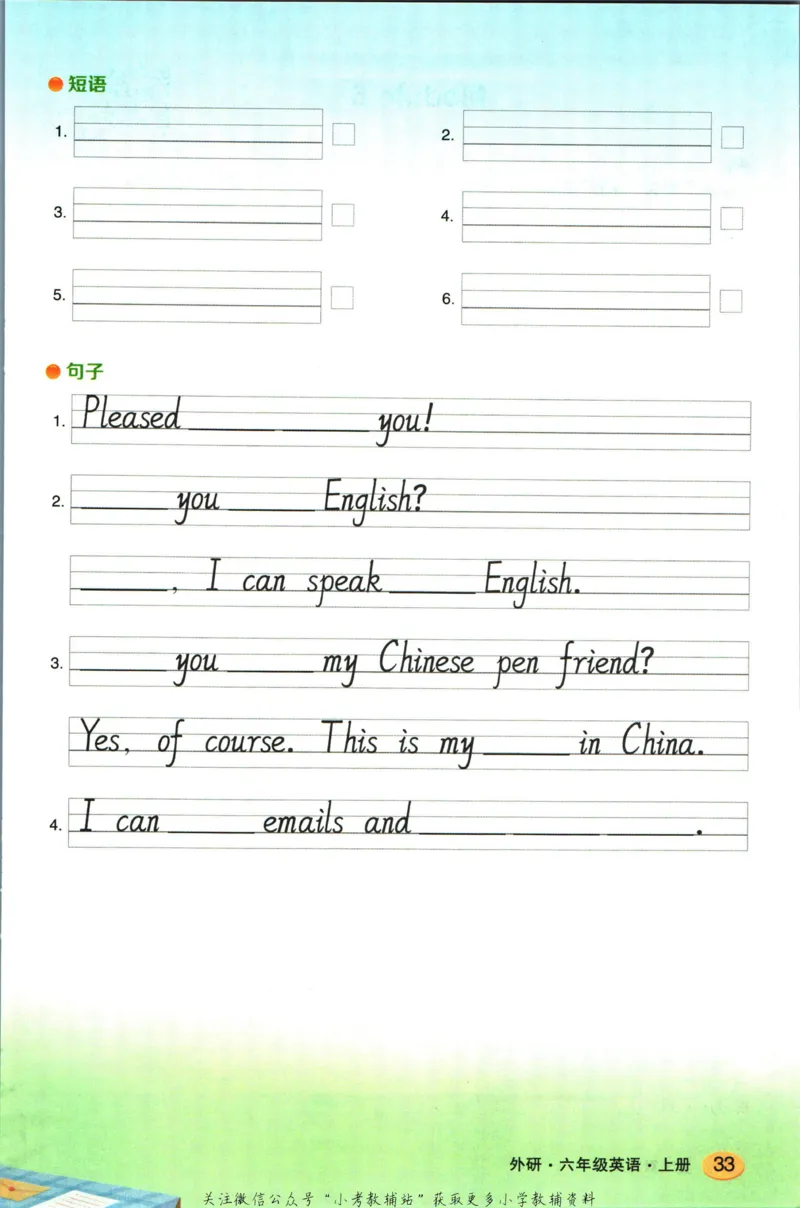 短语
1.
2.
3.
4.
5.
6.
句子
1. Pleased ______ ______ you!
2. ______ you ______ English?
______, I can speak ______ English.
3. ______ you ______ my Chinese pen friend?
Yes, of course. This is my ______ in China.
4. I can ______ emails and ______ ______ ______.
外研·六年级英语·上册 33
关注微信公众号“小考教辅站”获取更多小学教辅资料